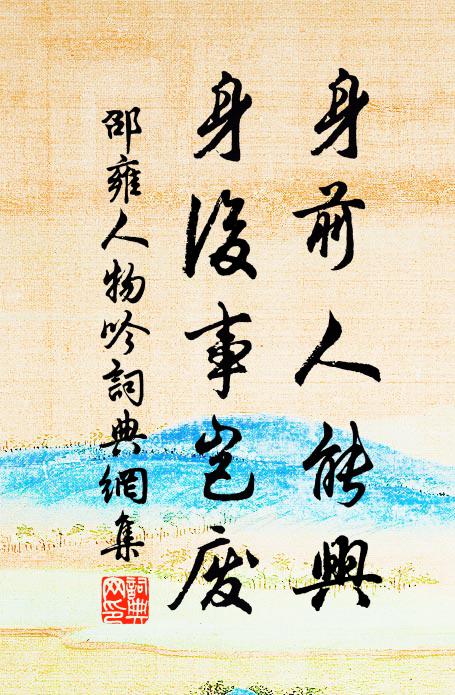 身前人能興
身後事豈廢
邵雍人物吟詞典網集
詞典網印